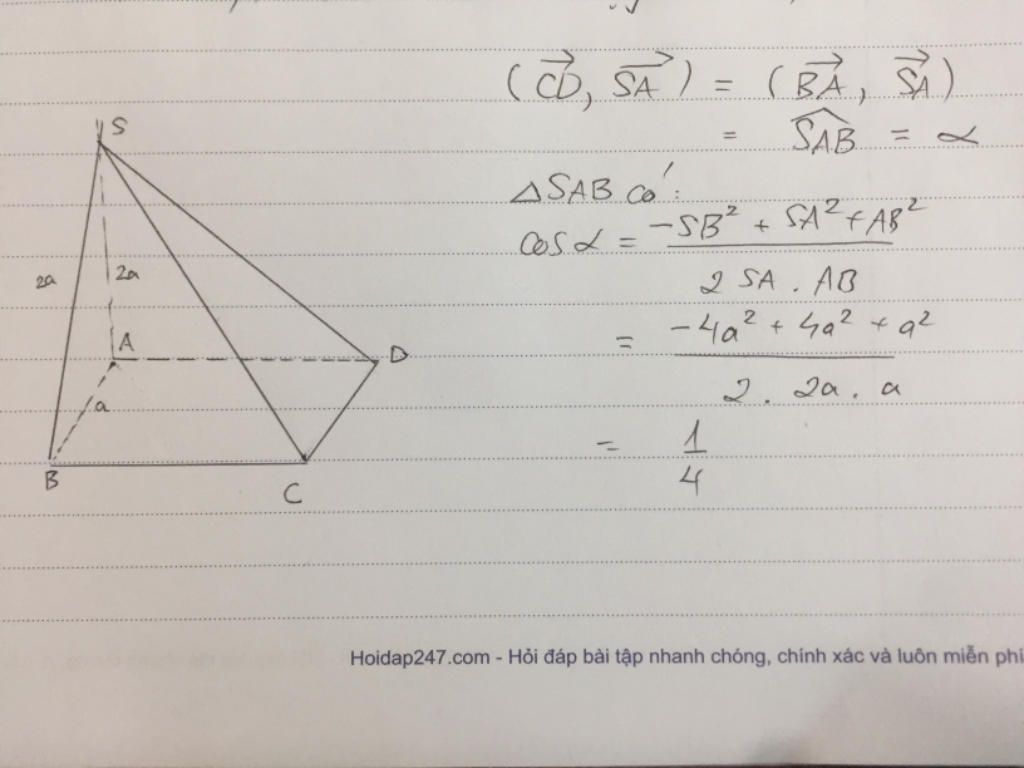 (CD, SA) = (BA, SA)
= SAB = α
△SAB có:
cos α = -SB² + SA² + AB²
2 SA . AB
= -4a² + 4a² + a²
2 . 2a . a
= 1
4
S
2a
2a
A
D
a
B
C
Hoidap247.com - Hỏi đáp bài tập nhanh chóng, chính xác và luôn miễn phí